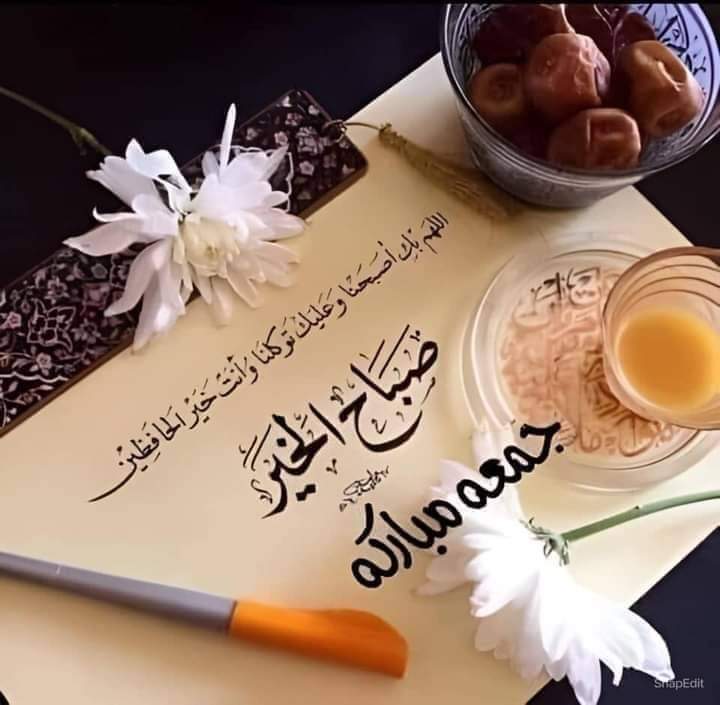 اللهم بك أصبحنا وعليك توكلنا وأنت خير الحافظين
صباح الخير
جمعه مباركه
SnapEdit